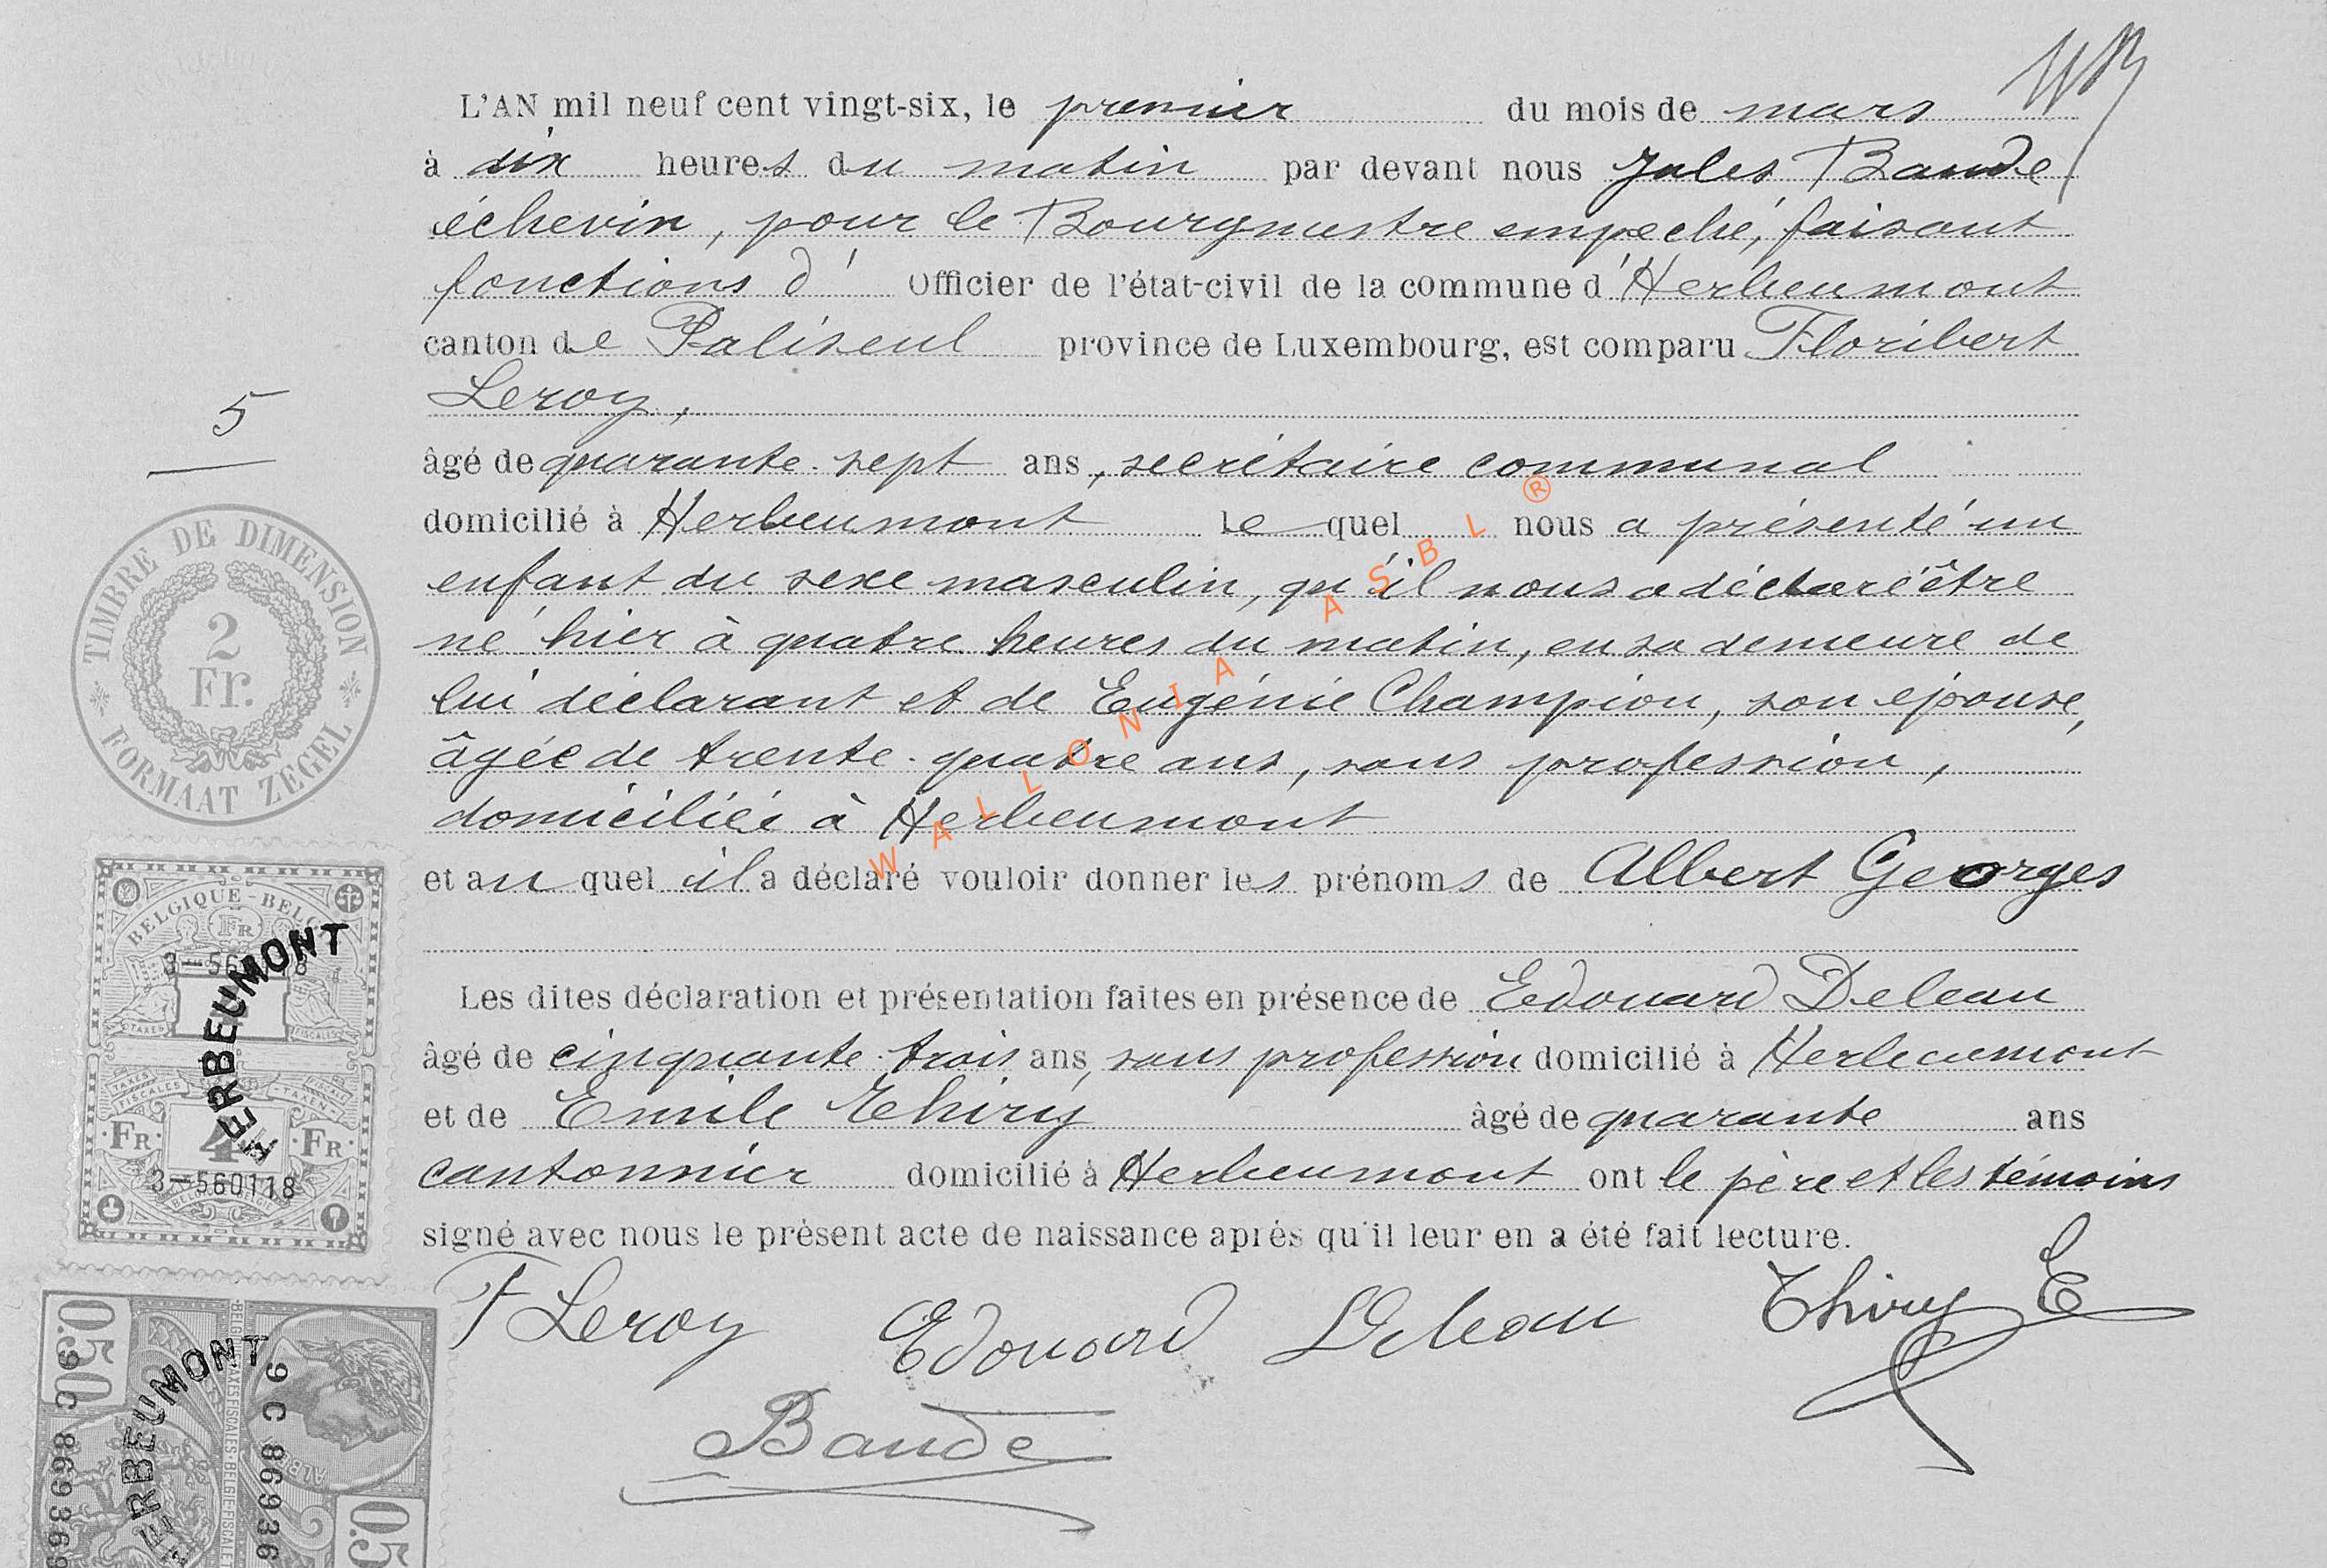 L'AN mil neuf cent vingt-six, le premier du mois de mars
à dix heures du matin par devant nous Jules Baude
échevin, pour le Bourgmestre empeché, faisant
fonctions d' Officier de l'état-civil de la commune d'Herbeumont
canton de Paliseul province de Luxembourg, est comparu Floribert
Leroy,
5
âgé de quarante-sept ans, secrétaire communal
domicilié à Herbeumont Le quel nous a présenté un
enfant du sexe masculin, qu'il nous a déclaré être
né hier à quatre heures du matin, en sa demeure de
lui déclarant et de Eugénie Champion, son épouse,
âgée de trente-quatre ans, sans profession,
domiciliée à Herbeumont
et au quel il a déclaré vouloir donner les prénoms de Albert Georges
Les dites déclaration et présentation faites en présence de Edouard Deleau
âgé de cinquante-trois ans, sans profession domicilié à Herbeumont
et de Emile Thiry âgé de quarante ans
cantonnier domicilié à Herbeumont ont le père et les témoins
signé avec nous le présent acte de naissance après qu'il leur en a été fait lecture.
F Leroy Edouard Deleau Thiry E
Baude
TIMBRE DE DIMENSION
2
Fr.
FORMAAT ZEGEL
BELGIQUE-BELGIË
FR
3-560118
HERBEUMONT
TAXES FISCALES
TAXEN
FR 4 FR
3-560118
0.50
HERBEUMONT
9C 86936
9C 869369
0.5
WALLONIA ASBL ®